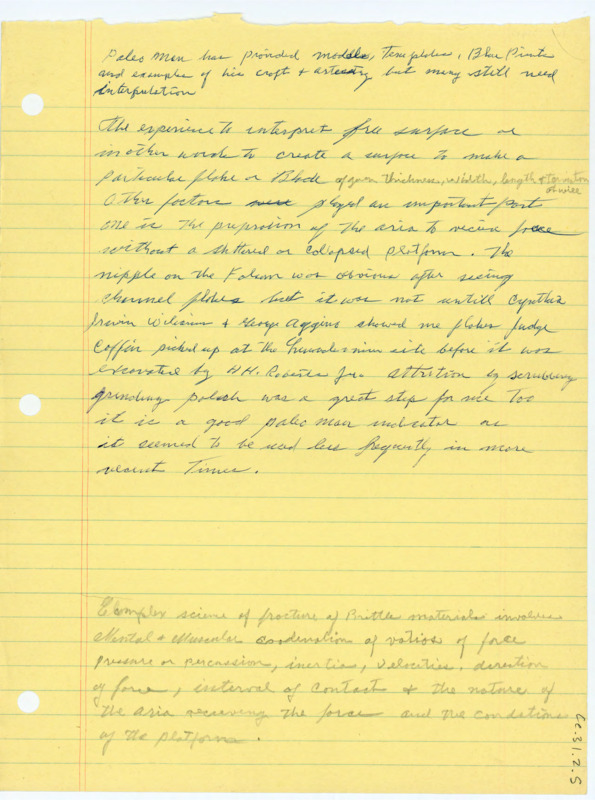 Paleo Man has provided models, Templates, Blue Prints
and examples of his craft & artestry but many still need
interpulation
The experience to interpret free surface or
in other words to create a surface to make a
particular flake or Blade of given thickness, width, length &
Other factors played an important part
one is the prepration of the aria to recieve force
without a shttered or colapsed platform. The
nipple on the Folsom was obvious after seeing
channel flakes but it was not untill Cynthia
Irwin Williams & George Aggino showed me flakes Judge
Coffin picked up at the site before it was
excavated by HH. Roberts Jr. Attrition by scrubbing
grinding polish was a great step for me Too
it is a good paleo man indicator as
it seemed to be used less frequently in more
recent Times.
Complex science of fracture of Brittle materials involves
Mental & Muscular coordenation of ratios of force
Pressure or percussion, inertias, velocities, direction
of force, interval of contact & the nature of
the aria recieving the force and the conditions
of the platform.
CC.31.2.5